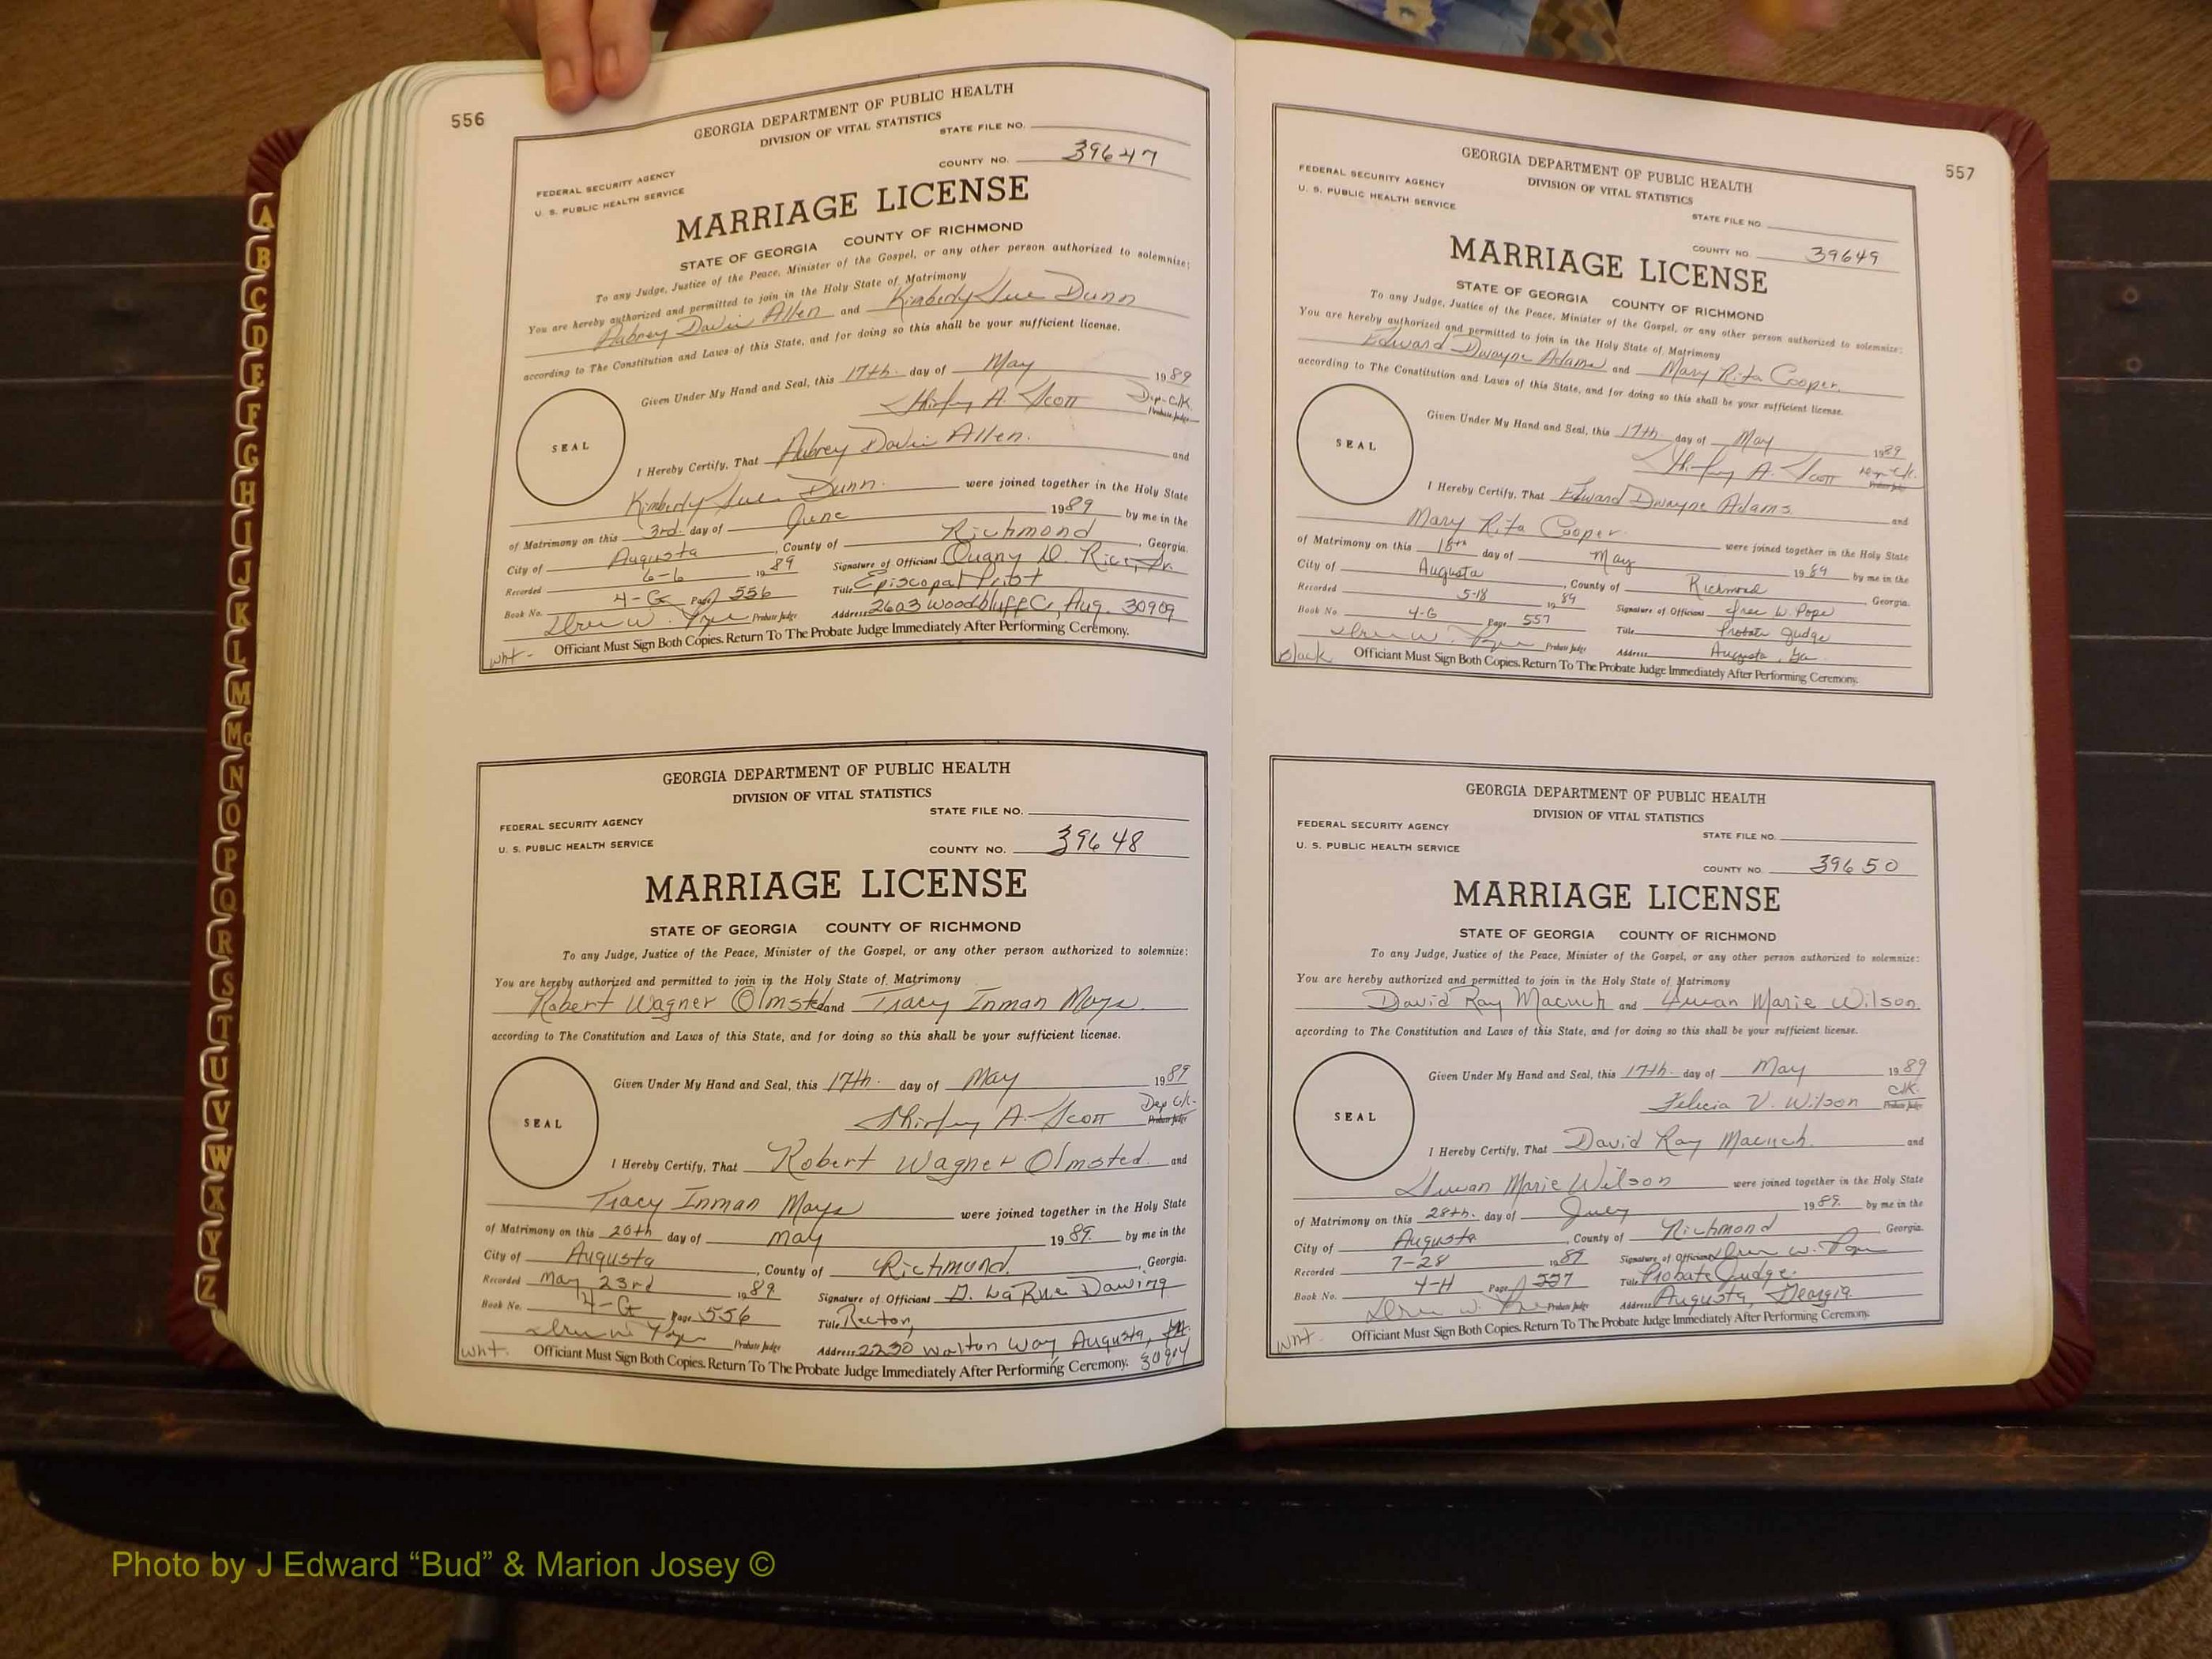 556
GEORGIA DEPARTMENT OF PUBLIC HEALTH
DIVISION OF VITAL STATISTICS
STATE FILE NO.
COUNTY NO. 39647
FEDERAL SECURITY AGENCY
U. S. PUBLIC HEALTH SERVICE
MARRIAGE LICENSE
STATE OF GEORGIA COUNTY OF RICHMOND
To any Judge, Justice of the Peace, Minister of the Gospel, or any other person authorized to solemnize:
You are hereby authorized and permitted to join in the Holy State of Matrimony
Aubrey Allen and Kimberly Sue Dunn
according to The Constitution and Laws of this State, and for doing so this shall be your sufficient license.
Given Under My Hand and Seal, this 17th. day of May 1989
Shirley A. Scott Dep-Clk.
Probate Judge
SEAL
I Hereby Certify, That Aubrey Allen. and
Kimberly Sue Dunn. were joined together in the Holy State
of Matrimony on this 3rd. day of June 1989 by me in the
City of Augusta, County of Richmond, Georgia.
Recorded 6-6 1989 Signature of Officiant
Book No. 4-G Page 556 Title Episcopal
Probate Judge Address 2603 Aug. 30909
Officiant Must Sign Both Copies. Return To The Probate Judge Immediately After Performing Ceremony.
wht-
GEORGIA DEPARTMENT OF PUBLIC HEALTH
DIVISION OF VITAL STATISTICS
STATE FILE NO.
FEDERAL SECURITY AGENCY
U. S. PUBLIC HEALTH SERVICE
COUNTY NO. 39648
MARRIAGE LICENSE
STATE OF GEORGIA COUNTY OF RICHMOND
To any Judge, Justice of the Peace, Minister of the Gospel, or any other person authorized to solemnize:
You are hereby authorized and permitted to join in the Holy State of Matrimony
Robert Wagner Olmsted and Tracy Inman Mays
according to The Constitution and Laws of this State, and for doing so this shall be your sufficient license.
Given Under My Hand and Seal, this 17th. day of May 1989
Shirley A. Scott Dep Clk.
Probate Judge
SEAL
I Hereby Certify, That Robert Wagner Olmsted. and
Tracy Inman Mays were joined together in the Holy State
of Matrimony on this 20th day of May 1989. by me in the
City of Augusta, County of Richmond, Georgia.
Recorded May 23rd 1989. Signature of Officiant
Book No. 4-G Page 556 Title Rector,
Probate Judge Address 2230 Walton Way, Augusta, 30904
wht. Officiant Must Sign Both Copies. Return To The Probate Judge Immediately After Performing Ceremony.
557
GEORGIA DEPARTMENT OF PUBLIC HEALTH
DIVISION OF VITAL STATISTICS
FEDERAL SECURITY AGENCY
U. S. PUBLIC HEALTH SERVICE
STATE FILE NO.
COUNTY NO. 39649
MARRIAGE LICENSE
STATE OF GEORGIA COUNTY OF RICHMOND
To any Judge, Justice of the Peace, Minister of the Gospel, or any other person authorized to solemnize:
You are hereby authorized and permitted to join in the Holy State of Matrimony
Edward Dwayne Adams and Mary Rita Cooper.
according to The Constitution and Laws of this State, and for doing so this shall be your sufficient license.
Given Under My Hand and Seal, this 17th day of May 1989
Shirley A. Scott Dep-Clk.
Probate Judge
SEAL
I Hereby Certify, That Edward Dwayne Adams. and
Mary Rita Cooper. were joined together in the Holy State
of Matrimony on this 18th day of May 1989 by me in the
City of Augusta, County of Richmond Georgia.
Recorded 5-18 1989 Signature of Officiant W. Pope
Book No. 4-G Page 557 Title Probate Judge
Probate Judge Address Augusta, Ga.
Black Officiant Must Sign Both Copies. Return To The Probate Judge Immediately After Performing Ceremony.
GEORGIA DEPARTMENT OF PUBLIC HEALTH
DIVISION OF VITAL STATISTICS
FEDERAL SECURITY AGENCY
U. S. PUBLIC HEALTH SERVICE
STATE FILE NO.
COUNTY NO. 39650
MARRIAGE LICENSE
STATE OF GEORGIA COUNTY OF RICHMOND
To any Judge, Justice of the Peace, Minister of the Gospel, or any other person authorized to solemnize:
You are hereby authorized and permitted to join in the Holy State of Matrimony
David Ray and Marie Wilson
according to The Constitution and Laws of this State, and for doing so this shall be your sufficient license.
Given Under My Hand and Seal, this 17th. day of May 1989
Felicia V. Wilson Clk.
Probate Judge
SEAL
I Hereby Certify, That David Ray and
Marie Wilson were joined together in the Holy State
of Matrimony on this 28th. day of July 1989. by me in the
City of Augusta, County of Richmond, Georgia.
Recorded 7-28 1989 Signature of Officiant
Book No. 4-H Page Title Probate Judge.
Probate Judge Address Augusta, Georgia.
wht- Officiant Must Sign Both Copies. Return To The Probate Judge Immediately After Performing Ceremony.
A
B
C
D
E
F
G
H
I
J
K
L
M
Mc
N
O
P
Q
R
S
T
U
V
W
X
Y
Z
Photo by J Edward “Bud” & Marion Josey ©